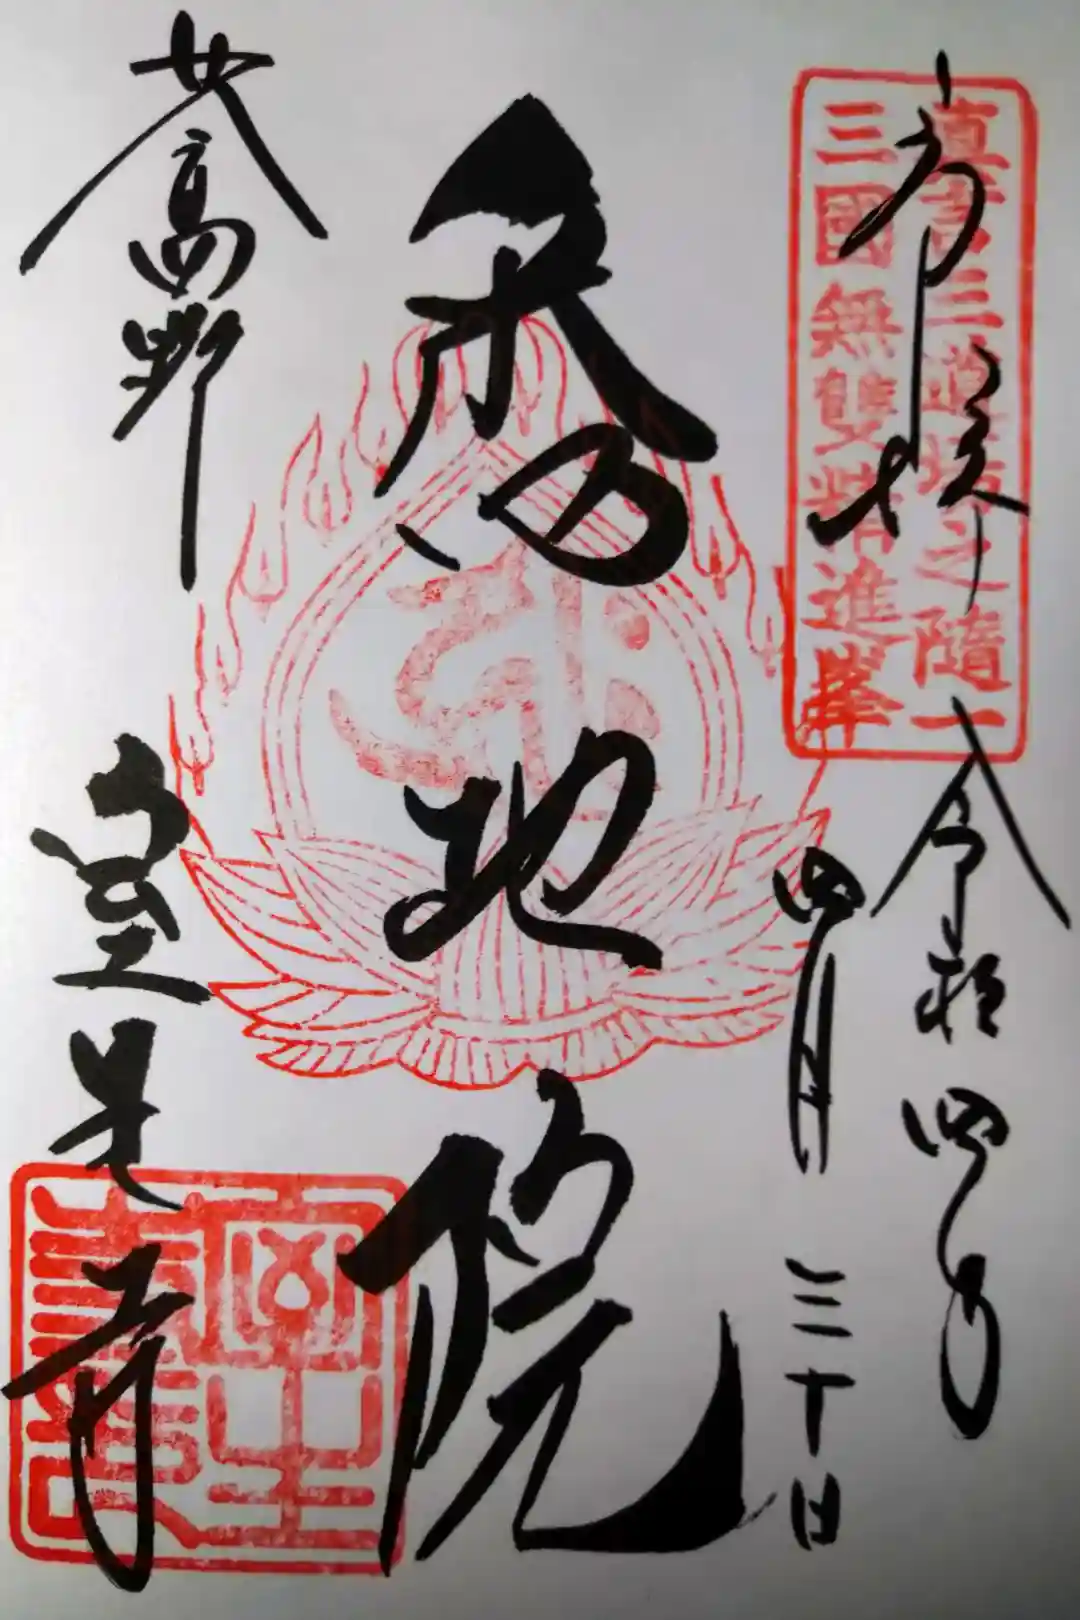 奉拝
真言三道場之隨一
三國無雙精進峯
令和四年
四月三十日
悉地院
女人高野
室生寺